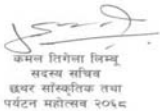 कमल तिगेला लिम्बू
सदस्य सचिव
छथर साँस्कृतिक तथा
पर्यटन महोत्सव २०६८